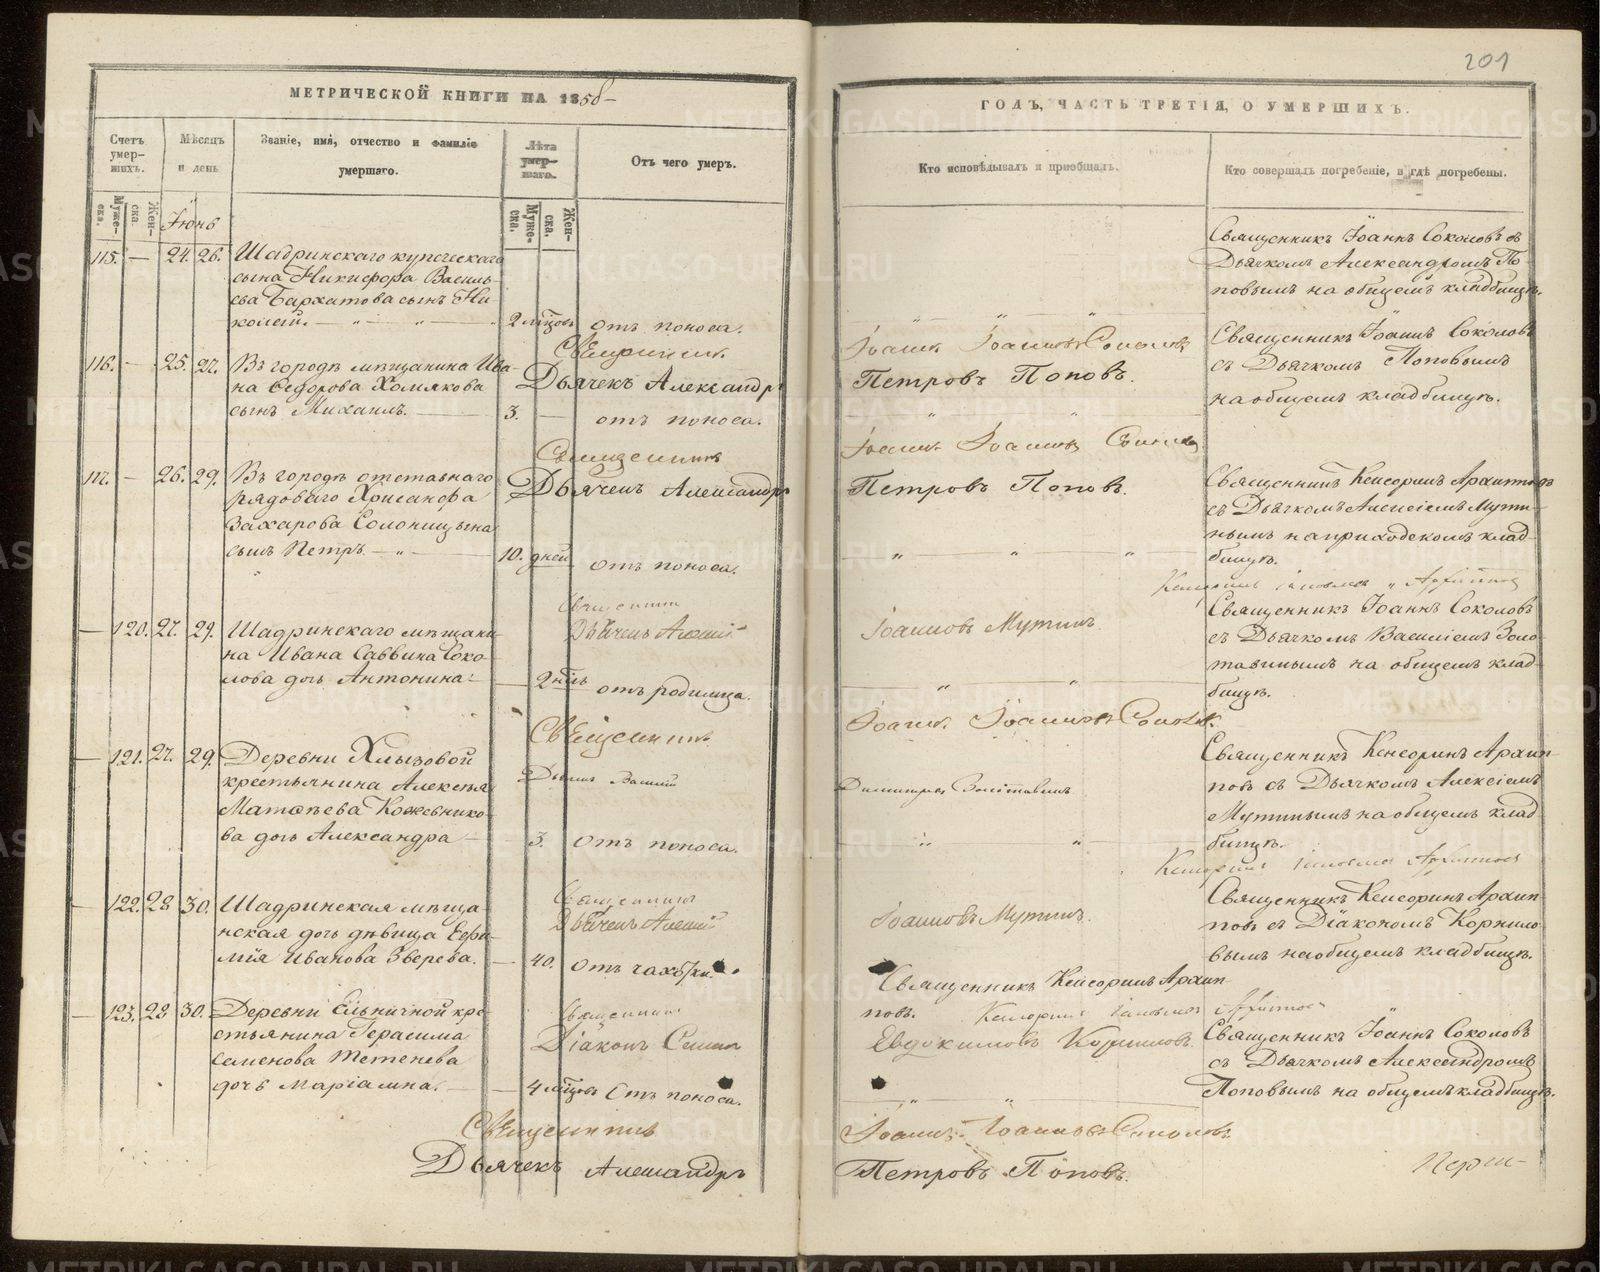 201
МЕТРИЧЕСКОЙ КНИГИ НА 1858
ГОДЪ, ЧАСТЬ ТРЕТІЯ, О УМЕРШИХЪ.
Счетъ умер-шихъ.
Мѣсяцъ и день
Званіе, имя, отчество и фамилія умершаго.
Лѣта умер-шаго.
Отъ чего умеръ.
Кто исповѣдывалъ и пріобщалъ.
Кто совершалъ погребеніе, и гдѣ погребены.
Муже-ска.
Жен-ска
Іюнь
Муже-ска.
Жен-ска.
115. — 24. 26. Шадринскаго купеческаго
сына Никифора Василь-
ева Бархатова сынъ Ни-
колай.
2 мѣсцовъ отъ поноса.
Священникъ Іоаннъ Соколовъ съ
Дьячкомъ Александромъ По-
повымъ на общемъ кладбищѣ.
Священникъ Іоаннъ Іоанновъ Соколовъ
Дьячекъ Александръ Петровъ Поповъ.
116. — 25. 27. Въ городѣ мѣщанина Ива-
на Ѳедорова Холмакова
сынъ Михаилъ.
3. — отъ поноса.
Священникъ Іоаннъ Соколовъ
съ Дьячкомъ Поповымъ
на общемъ кладбищѣ.
Священникъ Іоаннъ Іоанновъ Соколовъ
Дьячекъ Александръ Петровъ Поповъ.
117. — 26. 29. Въ городѣ отставнаго
рядоваго Хрисанфа
Захарова Солоницына
сынъ Петръ
10. дней отъ поноса.
Священникъ Кенсоринъ Архипповъ
съ Дьячкомъ Алексіемъ Мути-
нымъ на приходскомъ клад-
бищѣ.
Священникъ Кенсоринъ Архипповъ
Дьячекъ Алексій Іоанновъ Мутинъ.
— 120. 27. 29. Шадринскаго мѣщани-
на Ивана Саввина Соко-
лова дочь Антонина
— 2 отъ родимца.
Священникъ Іоаннъ Соколовъ
съ Дьячкомъ Василіемъ Золо-
тавинымъ на общемъ клад-
бищѣ.
Священникъ Іоаннъ Іоанновъ Соколовъ.
Василій Димитріевъ Золотавинъ
— 121. 27. 29. Деревни Хлызовой
крестьянина Алексѣя
Матѳѣева Кожевнико-
ва дочь Александра
— 3. отъ поноса.
Священникъ Кенсоринъ Архип-
повъ съ Дьячкомъ Алексіемъ
Мутинымъ на общемъ клад-
бищѣ.
Священникъ Кенсоринъ Архипповъ
Дьячекъ Алексій Іоанновъ Мутинъ.
— 122. 28 30. Шадринская мѣща-
нская дочь дѣвица Евѳи-
мія Иванова Зверева.
— 40. Отъ чахотки.
Священникъ Кенсоринъ Архип-
повъ.
Священникъ Кенсоринъ Архип-
повъ съ Діакономъ Корнило-
вымъ на общемъ кладбищѣ.
Священникъ Кенсоринъ Архипповъ
Діаконъ Евдокимовъ Корниловъ.
— 123. 28 30. Деревни Ельничной кре-
стьянина Герасима
Семенова Тетенева
дочь Маріамна.
— 4 мѣсцовъ Отъ поноса.
Священникъ Іоаннъ Соколовъ
съ Дьячкомъ Александромъ
Поповымъ на общемъ кладбищѣ.
Священникъ Іоаннъ Іоанновъ Соколовъ
Дьячекъ Александръ Петровъ Поповъ.
METRIKI.GASO-URAL.RU